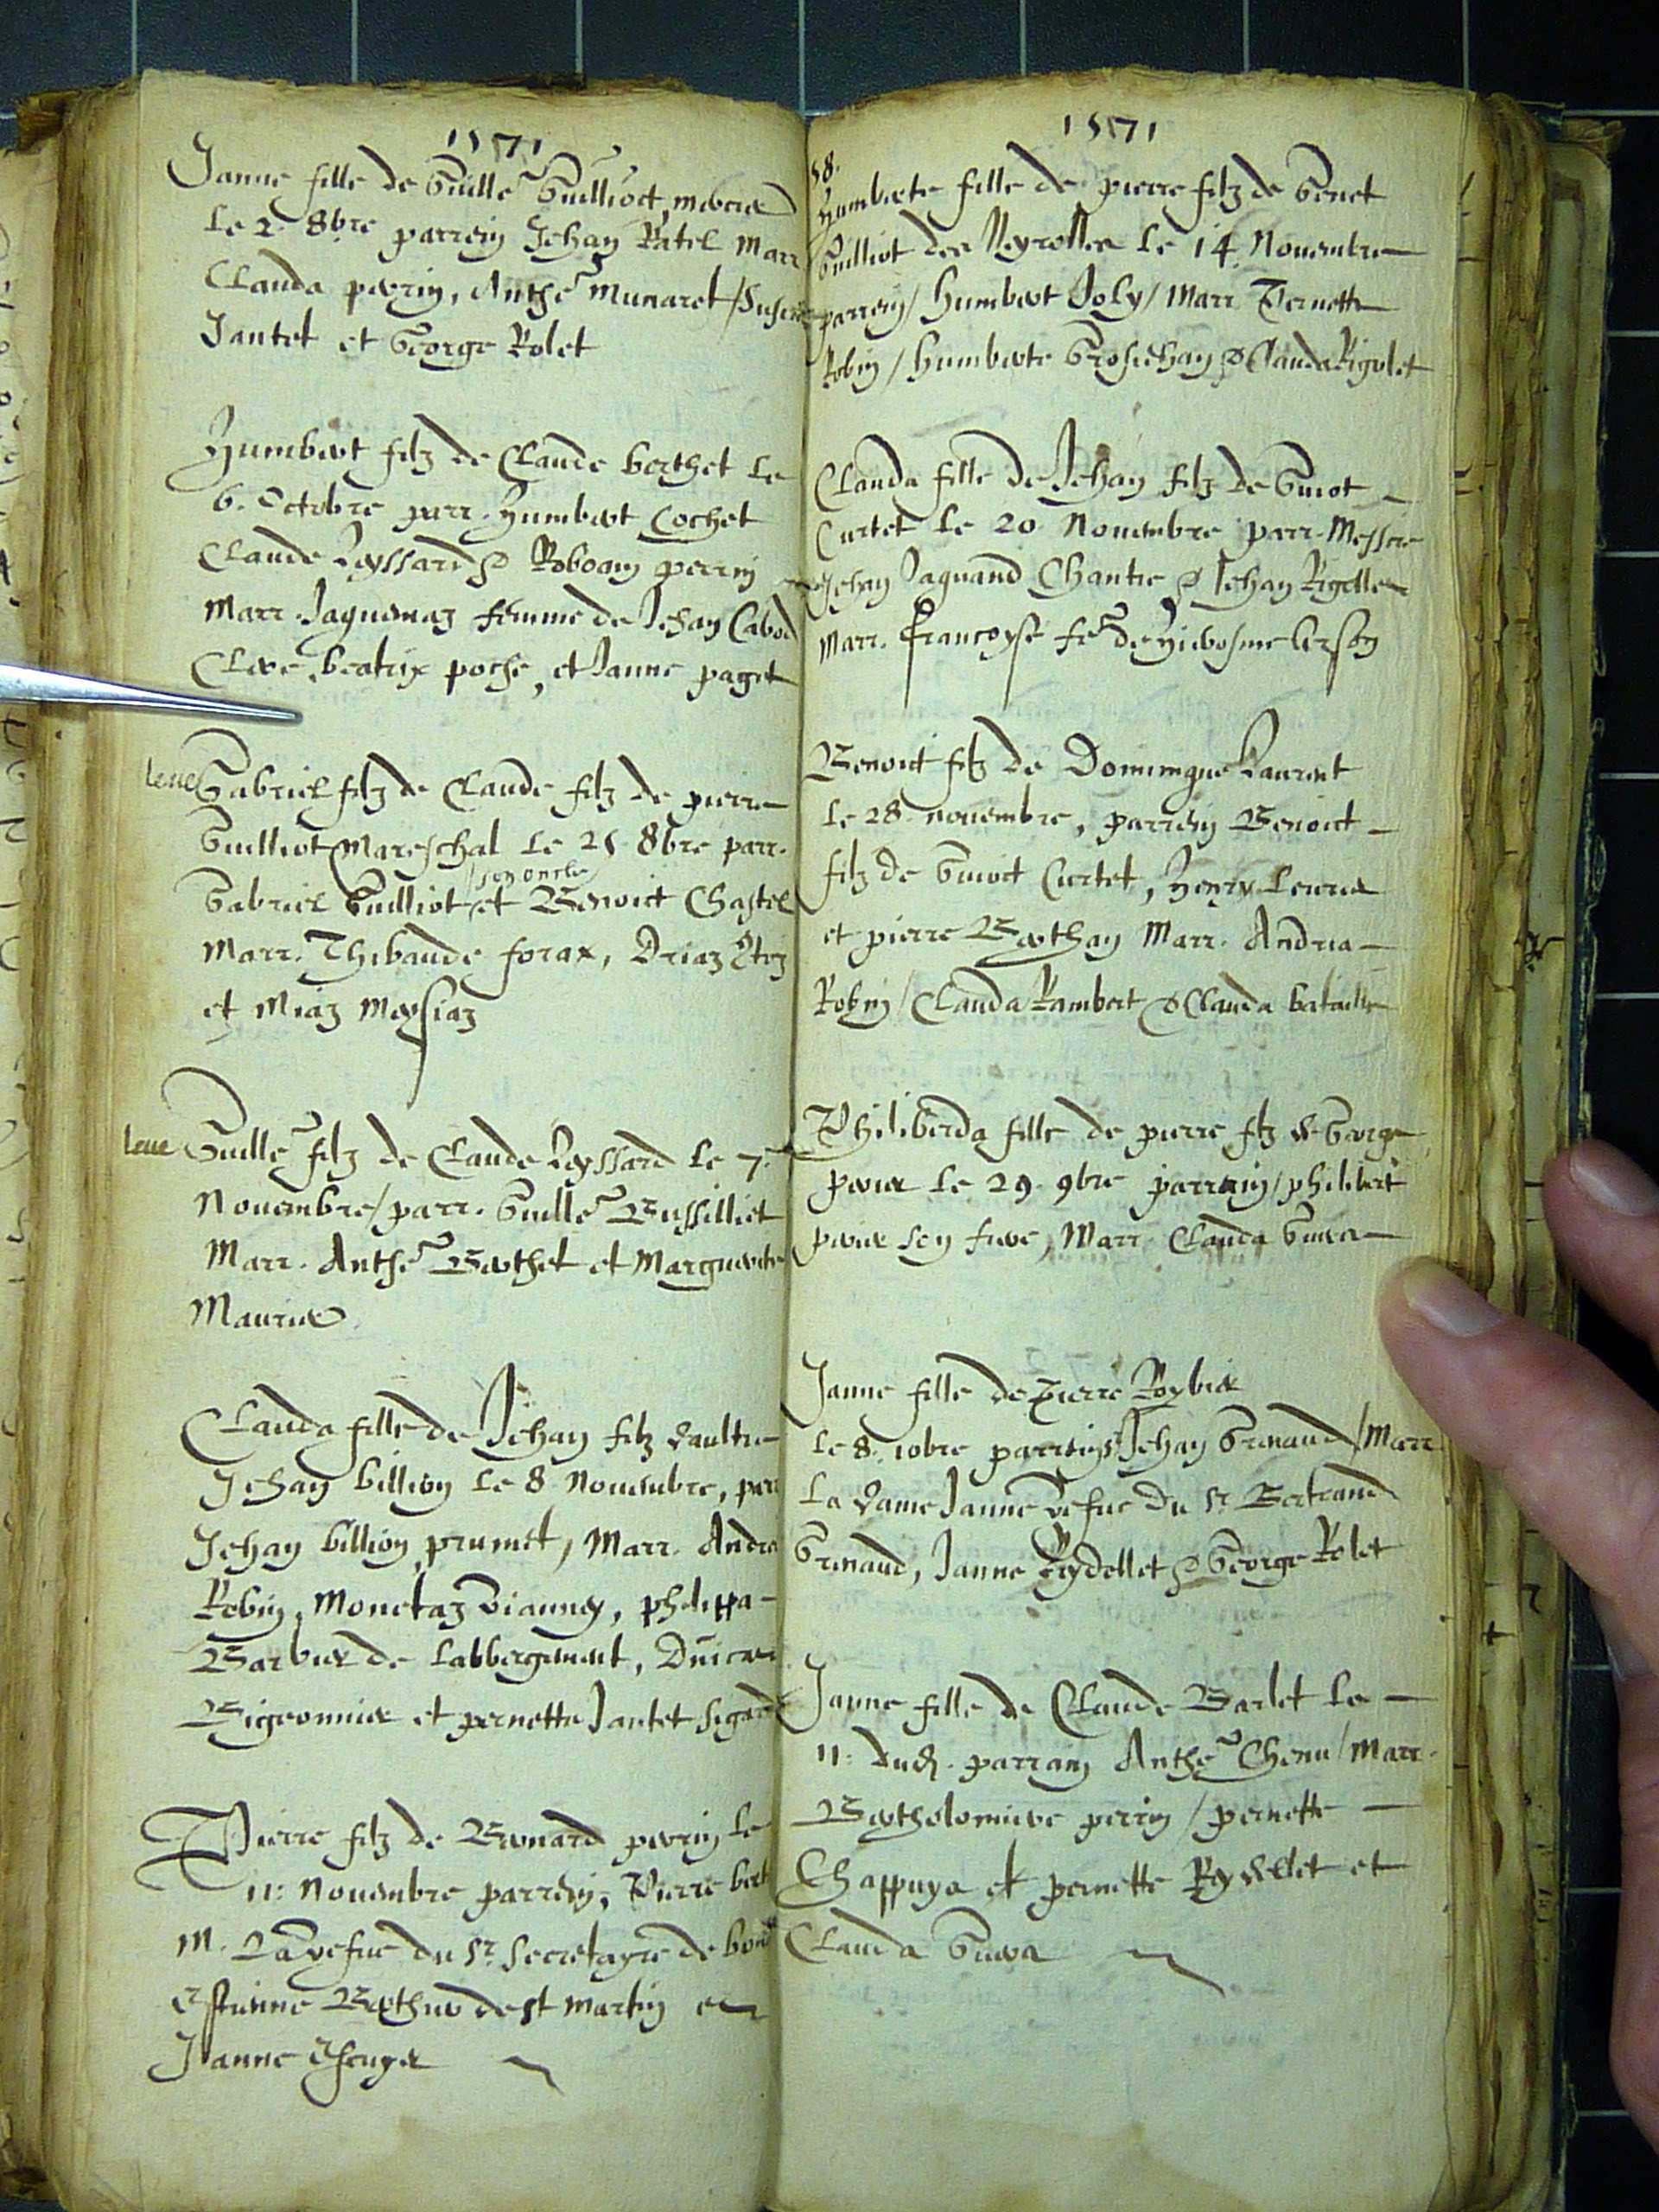 1571
Janne fille de Guille Guilliot, mercier
le 2 8bre parrein Jehan Ratel Marr
Clauda perrin, Anthe Munaret /
Jantet et George Rolet
Humbert filz de Claude berthet le
6. Octobre parr. Humbert Cochet
Claude Leyssard & Roboam perrin
Marr. Jaquemaz femme de Jehan Cabod
Clere, beatrix poche, et Janne paget
leue Gabriel filz de Claude filz de pierre
Guilliot Mareschal le 25 8bre parr.
son oncle
Gabriel Guilliot et Benoict Chastel
Marr. Thibaude forax, Driaz
et Miaz Meysiaz
leue Guille filz de Claude Leyssard le 7.
Nouembre / parr. Guille Bussilliet
Marr. Anthe Berthet et Marguerite
Maurier
Clauda fille de Jehan filz daultre
Jehan billion le 8 Nouembre, parr
Jehan billion prumet, Marr. Andrea
Robin, Monetaz Vianney, philippa
Barbier de Labbergement,
Bigeonnier et pernette Jantet
Pierre filz de Bernard perrin le
11: Nouembre parrein, Pierre bert
M. La vefue du Sr. Secretayre de
Estienne Berthier de St Martin et
Janne
1571
58.
Humberte fille de pierre filz de Genet
Guilliot des Neyrolles le 14. Nouembre
parrein / Humbert Joly / Marr. Pernette
Robin / humberte Grosjehan & Clauda Rigolet
Clauda fille de Jehan filz de Guiot
Curtet le 20 Nouembre parr. Messire
Jehan Jaquand Chantre & Jehan Rigolles
Marr. francoyse fe de Hierosme
Benoict filz de Dominique Laurent
le 28 nouembre, parrein Benoict
filz de Guiot Curtet, Henry
et pierre Berthan Marr. Andria
Robin / Clauda Rambert & Clauda bataille
Philiberda fille de pierre filz de George
perier le 29. 9bre parrain / philibert
perier son frere, Marr. Clauda
Janne fille de Pierre Roybier
le 8. 10bre parreins Jehan Grenaud / Marr
La dame Janne vefue du Sr. Bertrand
Grenaud, Janne Reydellet & George Rolet
Janne fille de Claude Barlet le
11: dud. parrain Anthe Chenu / Marr.
Bertholomiere perrin / pernette
Chappuys et pernette Reydellet et
Clauda